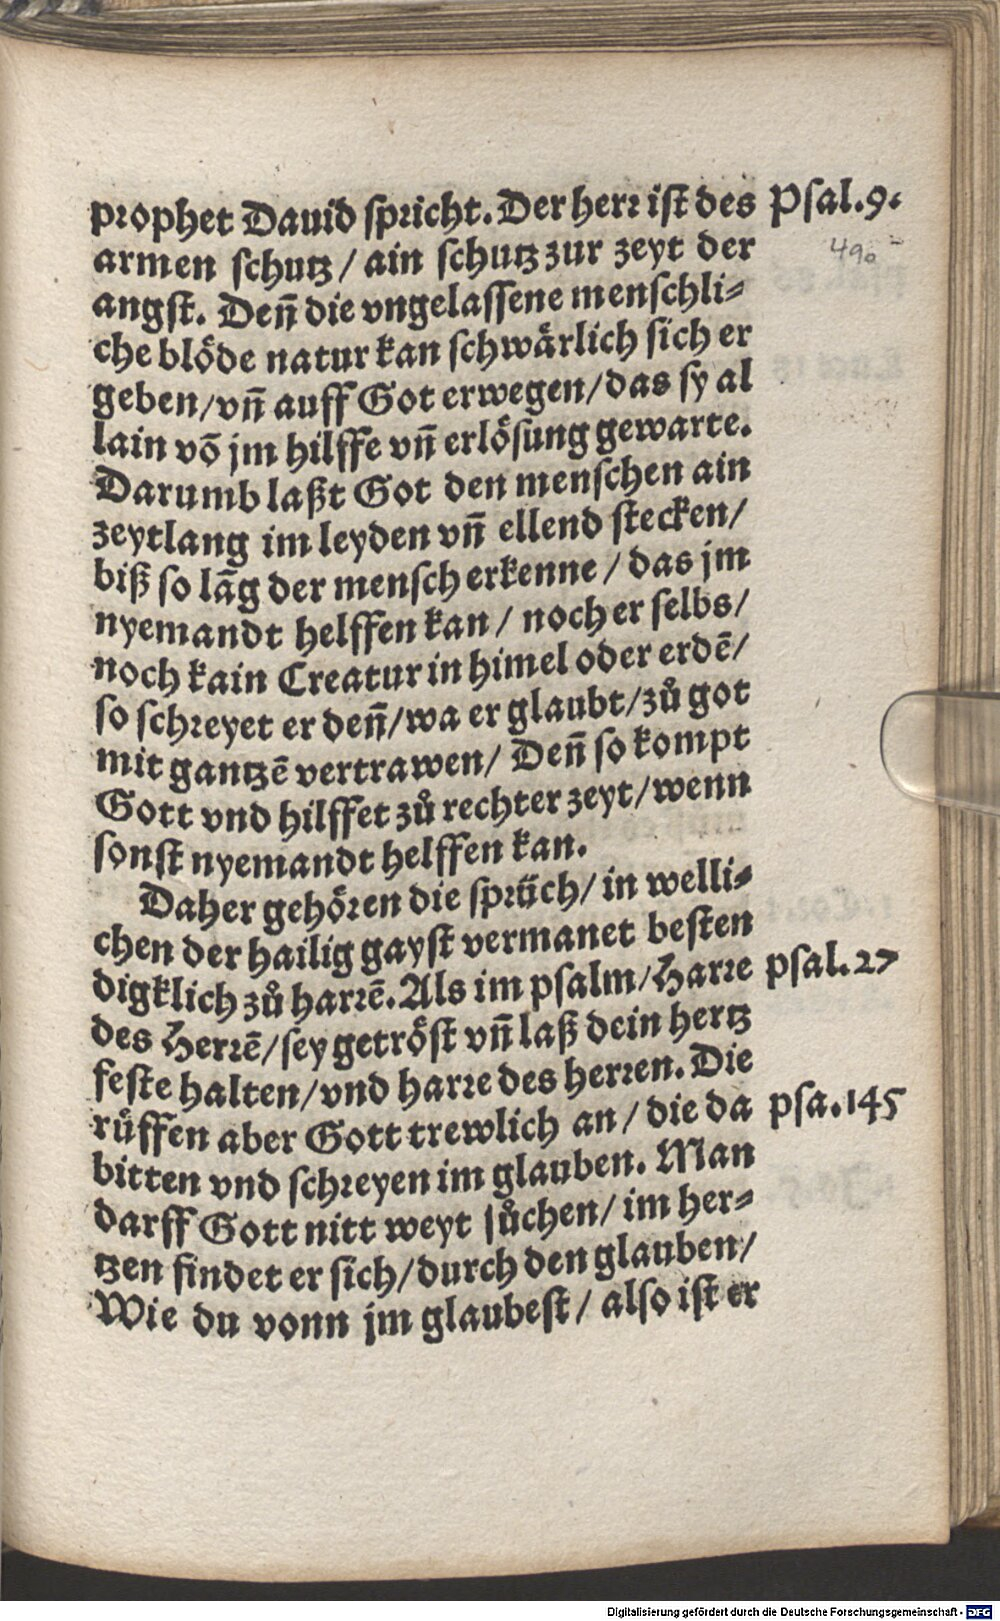 prophet Dauid spricht. Der herr ist des Psal. 9.
490
armen schutz / ain schutz zur zeyt der
angst. Deñ die vngelassene menschli⸗
che blöde natur kan schwårlich sich er
geben / vñ auff Got erwegen / das sy al
lain võ jm hilffe vñ erlösung gewarte.
Darumb laßt Got den menschen ain
zeytlang im leyden vñ ellend stecken /
biß so lãg der mensch erkenne / das jm
nyemandt helffen kan / noch er selbs /
noch kain Creatur in himel oder erdẽ /
so schreyet er deñ / wa er glaubt / zů got
mit gantzẽ vertrawen / Deñ so kompt
Gott vnd hilffet zů rechter zeyt / wenn
sonst nyemandt helffen kan.
Daher gehören die sprüch / in welli⸗
chen der hailig gayst vermanet besten
digklich zů harrẽ. Als im psalm / Harre psal. 27
des Herrẽ / sey getröst vñ laß dein hertz
feste halten / vnd harre des herren. Die
růffen aber Gott trewlich an / die da psa. 145
bitten vnd schreyen im glauben. Man
darff Gott nitt weyt sůchen / im her⸗
tzen findet er sich / durch den glauben /
Wie du vonn jm glaubest / also ist er
Digitalisierung gefördert durch die Deutsche Forschungsgemeinschaft - DFG